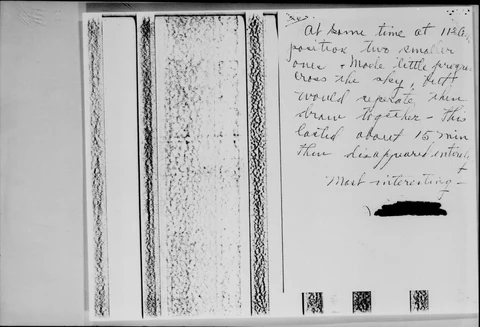 At some time at 11
position two smaller
ones + Made little progre
cross the sky, but
would separate, then
draw together - this
lasted about 15 min
then disappeared
Most interesting -